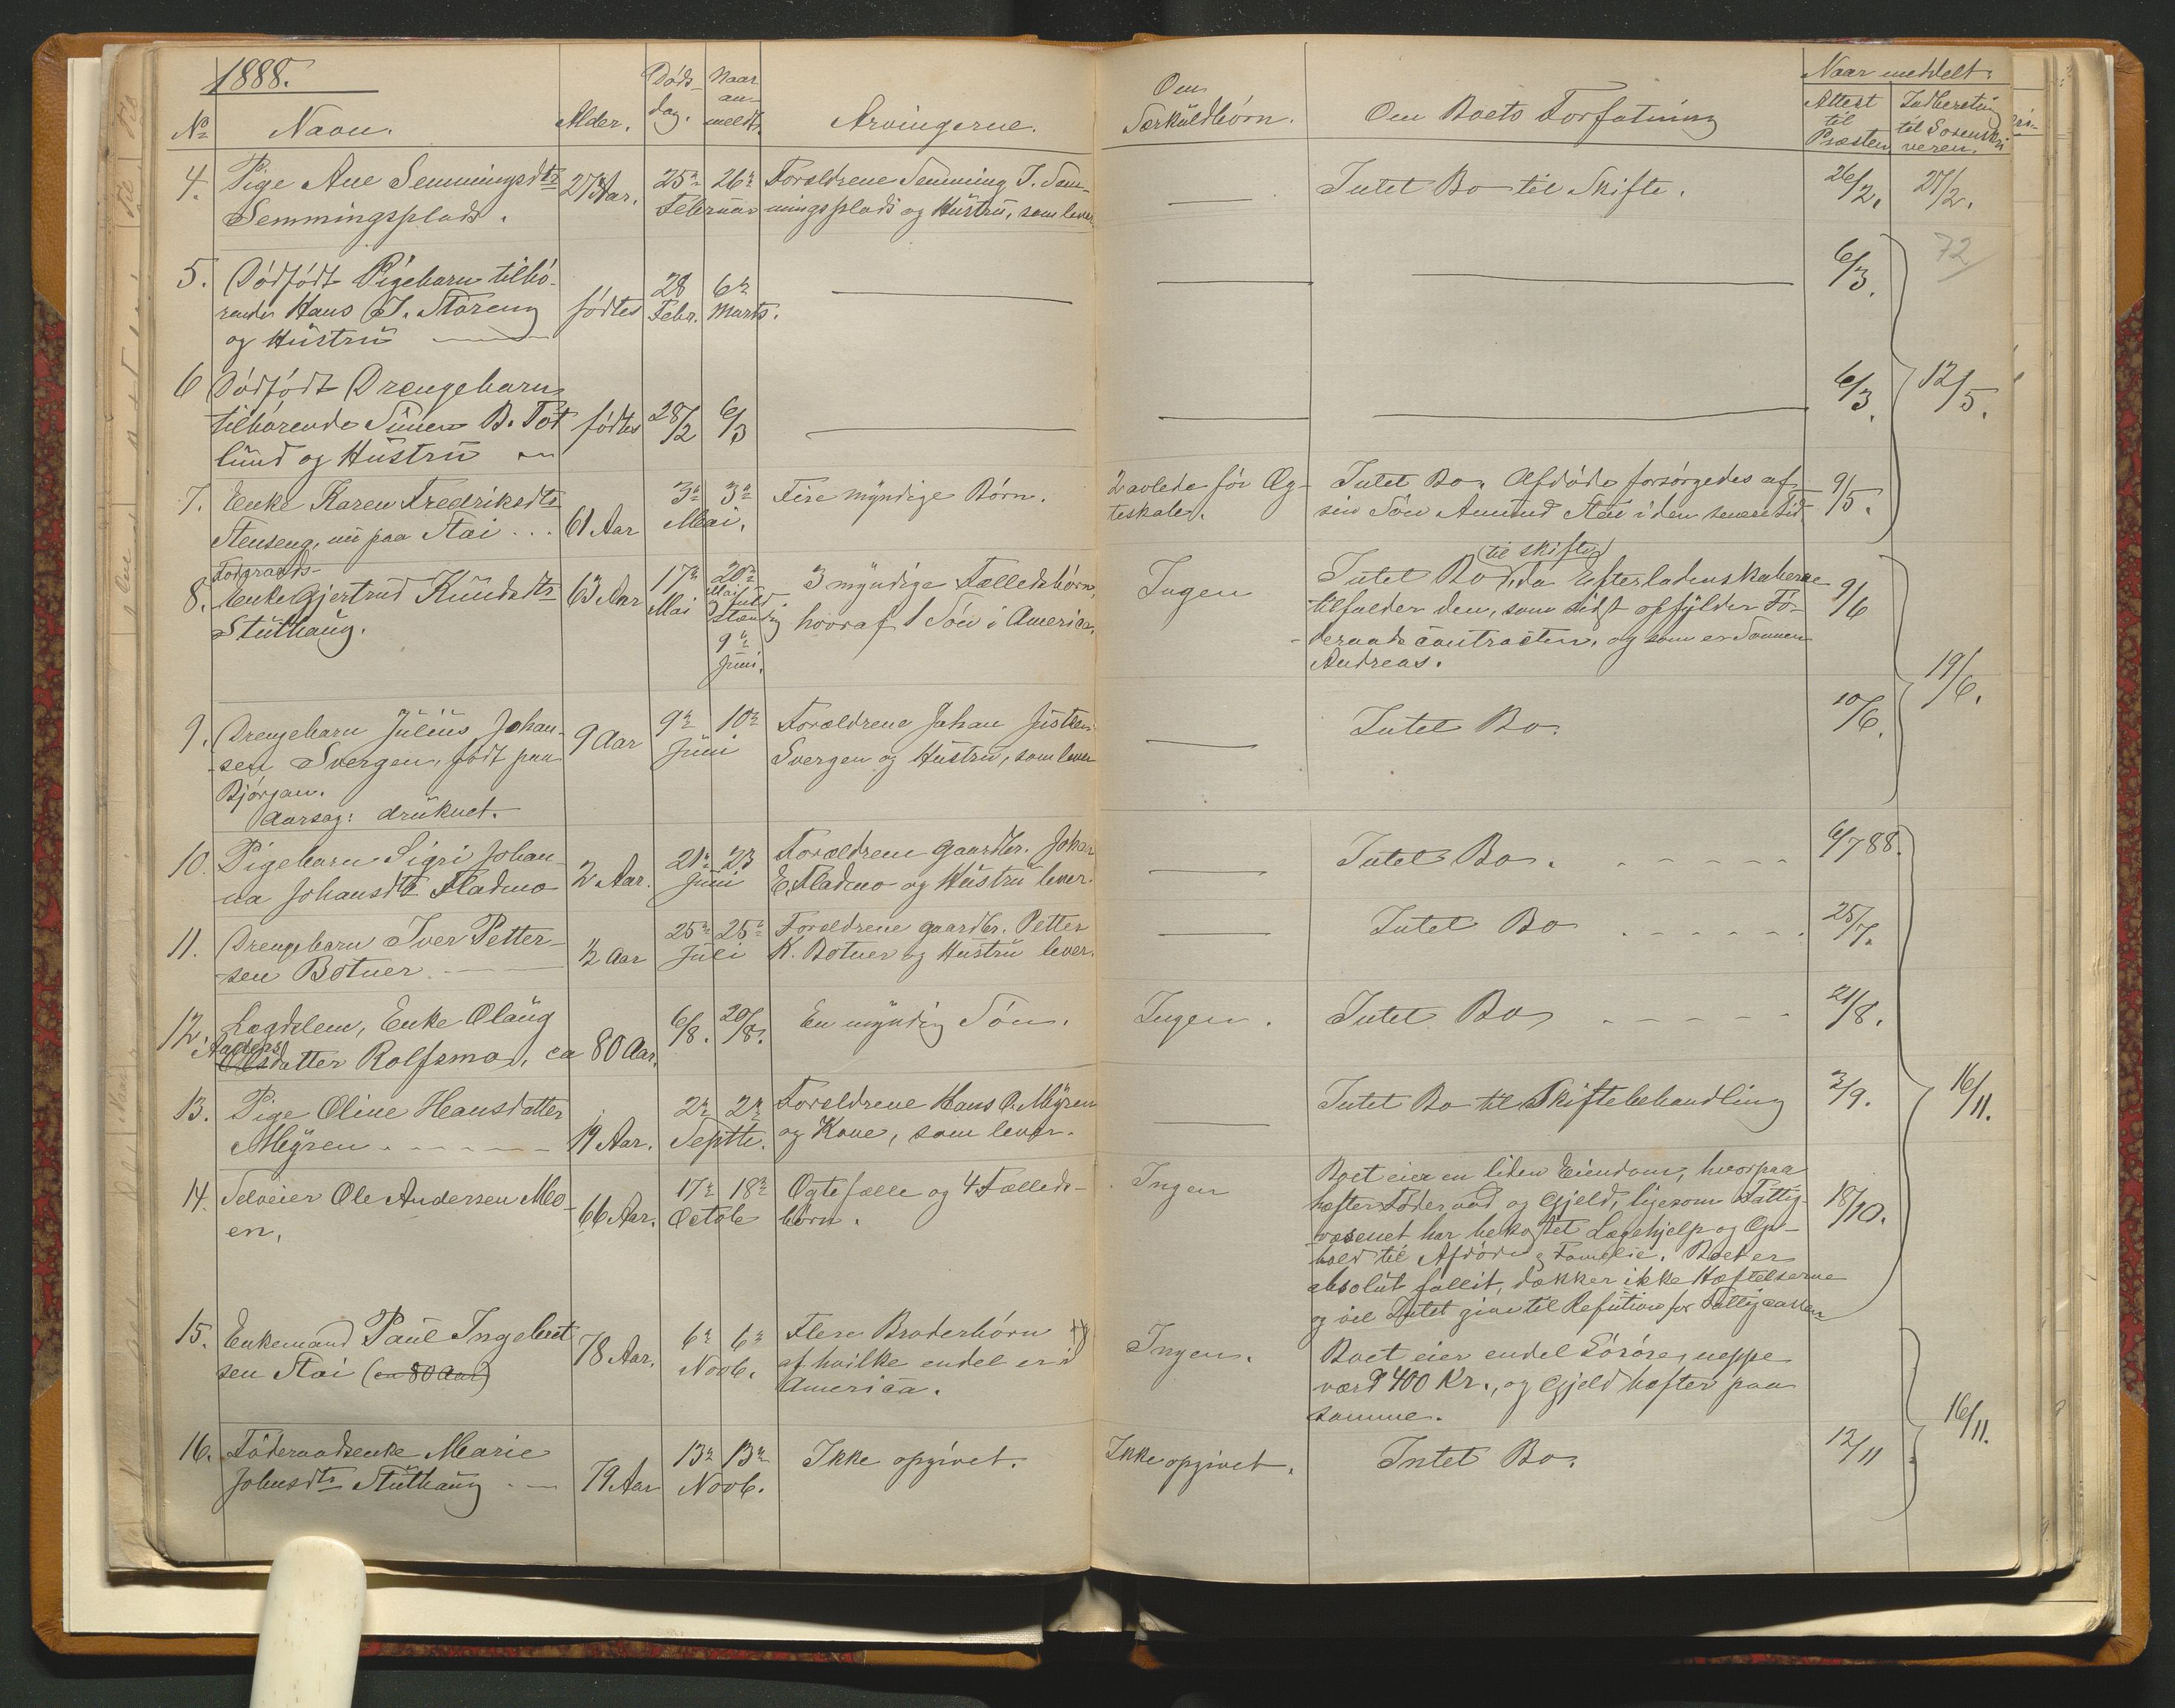 1888.
Nº Navn. Alder. Døds- dag. Naar an- meldt. Arvingerne.
Om Særkuldbørn. Om Boets Forfatning Naar meddelt.
Attest til Præsten Indberetning til Sorenskri veren.
4. Pige Ane Semmingsdtr 27 Aar. 25de 26de Forældrene Semming J. Sem-
Semmingsplads. Februar mingsplads og Hustru, som lever
Intet Bo til Skifte. 26/2. 27/2.
72
5. Dødfødt Pigebarn tilhø-
rende Hans J. Støreng fødtes 28 Febr. 6te Marts.
og Hustru
6/3.
6 Dødfødt Drengebarn
tilhørende Simen B. Tot fødtes 28/2 6/3
lund og Hustru
6/3. 12/5.
7. Enke Karen Fredriksdtr 3de 3de Fire myndige Børn.
Stenseng, nu paa Stai ... 61 Aar Mai.
2 avlede før Æg- Intet Bo. Afdøde forsørgedes af 9/5.
teskabet. sin Søn Amund Stai i den senere Tid.
Foderaads-
8. Enke Gjertrud Knudsdtr 63 Aar 17de Mai 20de Mai fuld- stændig 9de Juni. 3 myndige Fælledsbørn,
Stuthaug. hvoraf 1 Søn i America.
Ingen Intet Bo (til skifte) da Efterladenskaberne 9/6
tilfalder den, som sidst opfylder Fø-
deraadscontracten, og som er Sønnen
Andreas.
19/6.
9. Drengebarn Julius Johan- 9 Aar 9de 10de Forældrene Johan Justsen
sen Svergen, født paa Juni Svergen og Hustru, som lever
Bjørgan.
Aarsag: druknet.
Intet Bo. 10/6.
10. Pigebarn Sigri Johan- 2 Aar. 21de 23 Forældrene gaardbr. Johan
na Johansdtr Fladmo Juni E. Fladmo og Hustru lever.
Intet Bo. 6/7 88.
11. Drengebarn Iver Petter- ½ Aar 25de 25de Forældrene gaardbr. Petter
sen Botner Juli K. Botner og Hustru lever.
Intet Bo 25/7.
12. Lægdslem, Enke Olaug 6/8. 20/8. En myndig Søn.
Anders
Olsdatter Rolfsmo, ca 80 Aar.
Ingen. Intet Bo 21/8.
13. Pige Oline Hansdatter 2de 2de Forældrene Hans O. Myren
Myren 19 Aar. Septb. og Kone, som lever.
Intet Bo til Skiftebehandling 3/9. 16/11.
14. Selveier Ole Andersen Mo- 66 Aar. 17de 18de Ægtefælle og 4 Fælleds-
en, Octob børn.
Ingen Boet eier en liden Eiendom, hvorpaa
hæfter Føderaad og Gjeld, ligesom Fattig- 18/10.
væsenet har bekostet Lægehjelp og Op-
hold til Afdødes Familie. Boet er
absolut fallit, dækker ikke Hæftelserne
og vil Intet give til Refution for Fattigcassen
15. Enkemand Paul Ingebret 78 Aar. 6te 6te Flere Broderbørn
sen Stai (ca 80 Aar) Novb. af hvilke endel er i
America.
Ingen. Boet eier endel Løsøre, neppe
værd 400 Kr., og Gjeld hæfter paa
samme.
16/11.
16. Føderaadsenke Marie 13de 13de Ikke opgivet.
Johnsdtr Stuthaug 79 Aar Novb.
Ikke opgivet. Intet Bo. 12/11